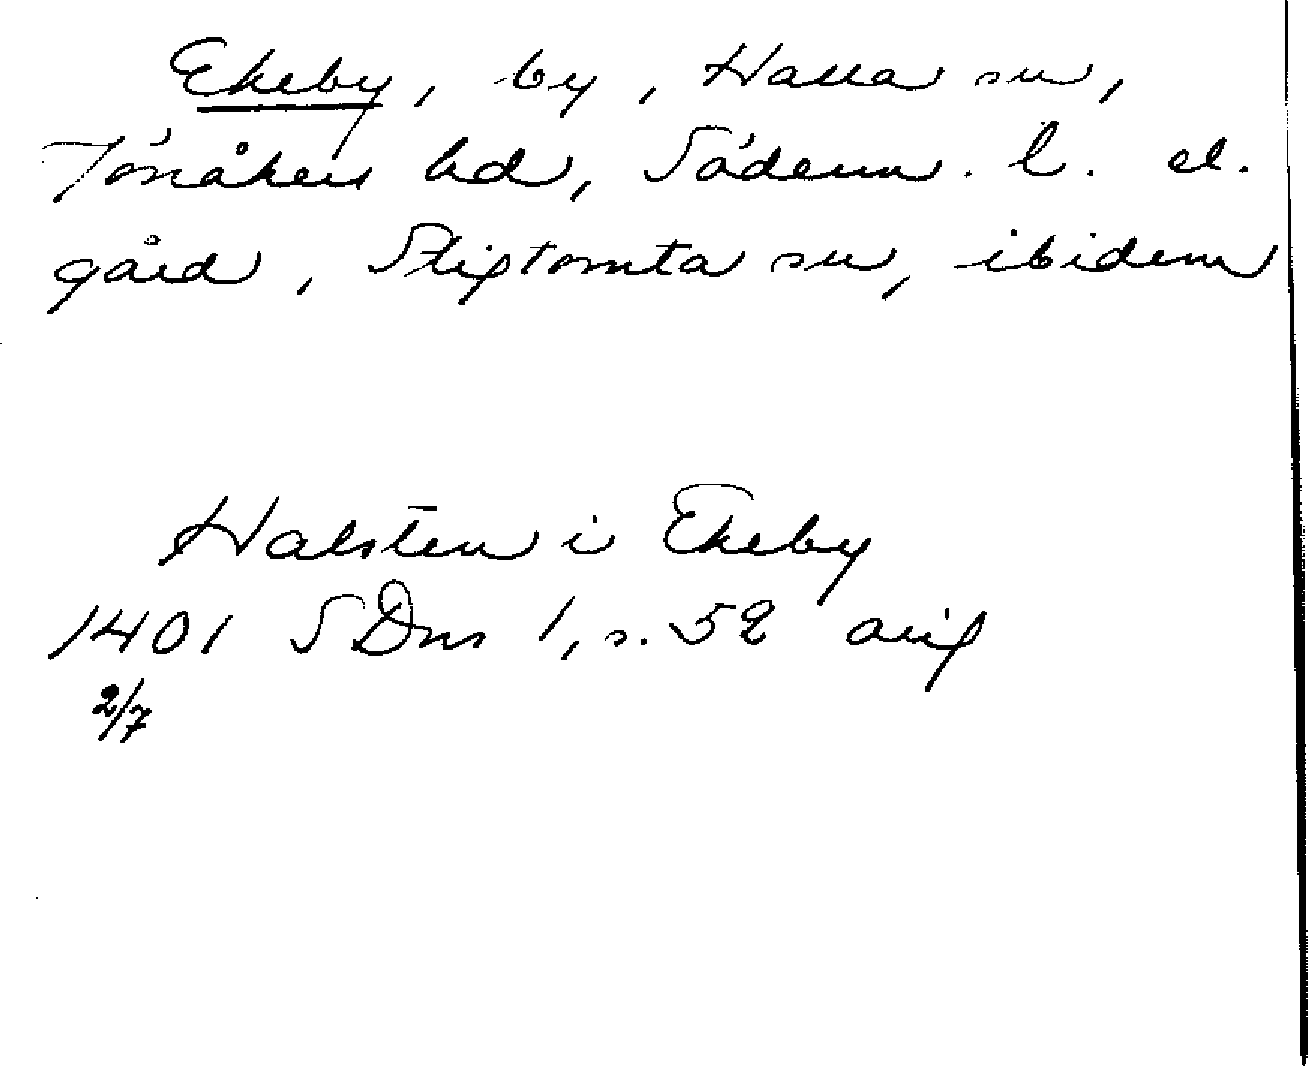 Ekeby, by, Halla sn,
Jönåkers hd, Söderm. l. el.
gård, Stigtomta sn, ibidem
Halsten i Ekeby
1401 SDns 1, s. 52 avig
2/7